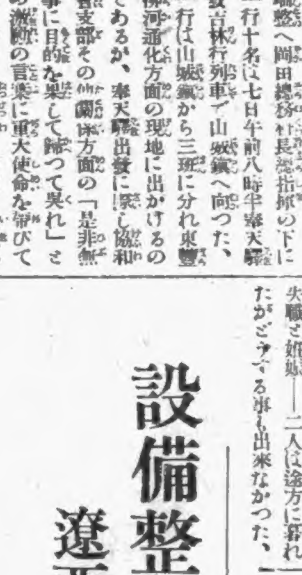 端整へ岡田總務社長總指揮の下に
一行十名は七日午前八時半奉天驛
發吉林行列車で山城鎭へ向つた、
一行は山城鎭から三班に分れ東豐
柳河通化方面の現地に出かけるの
であるが、奉天驛出發に際し協和
會支部その他關係方面の「是非無
事に目的を果して歸つて呉れ」と
の激勵の言葉に重大使命を帶びて
失職と姙娠――二人は途方に暮れ
たがどうする事も出來なかつた、
設備整
遼西